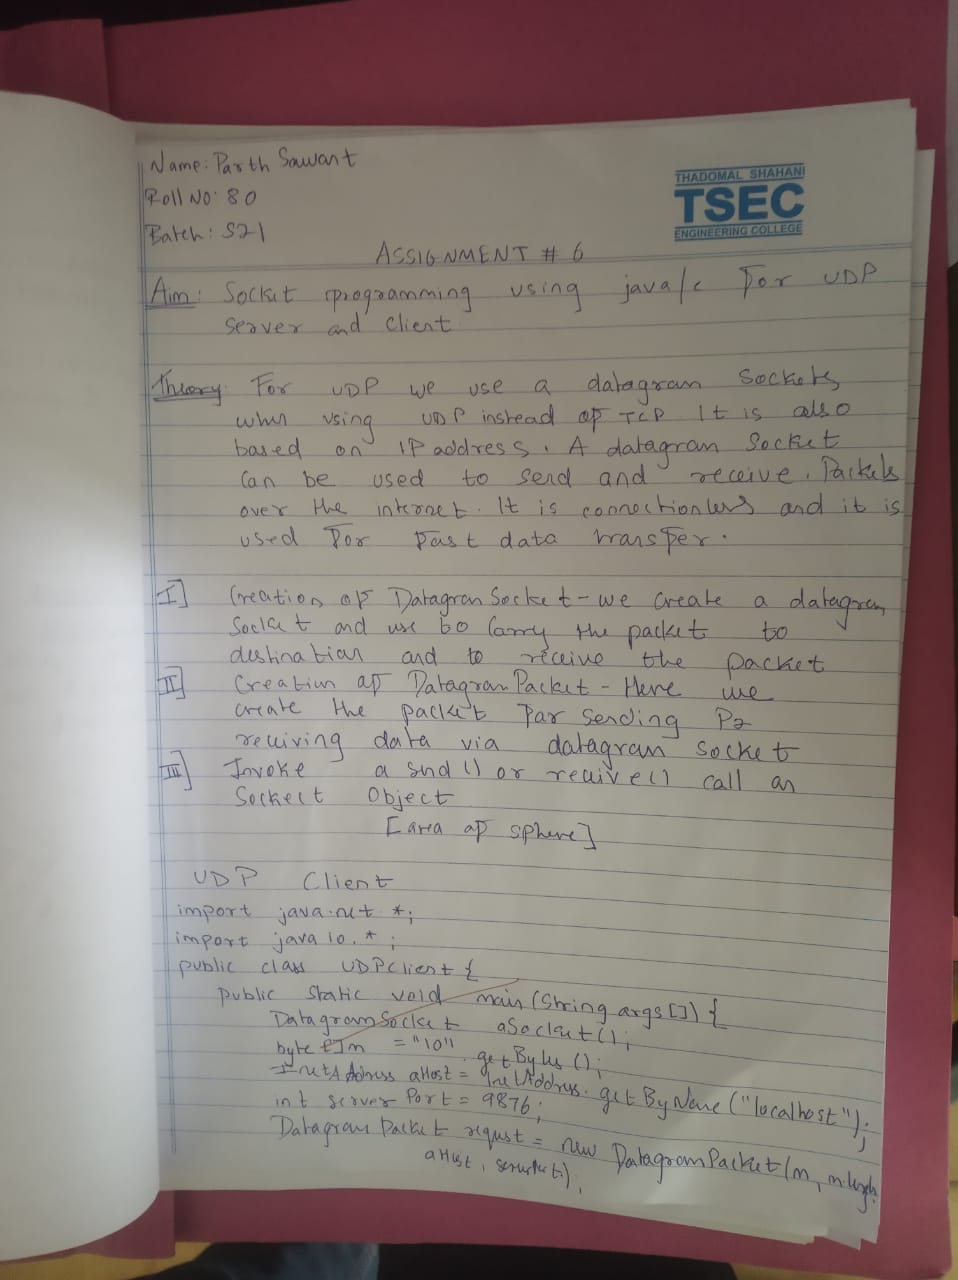 Name: Parth Sawant
Roll NO: 80
Batch: S21
THADOMAL SHAHANI
TSEC
ENGINEERING COLLEGE
ASSIGNMENT # 6
Aim: Socket programming using java/c For UDP
server and Client
Theory: For UDP we use a datagram Sockets
when using UDP instead of TCP. It is also
based on IP address. A datagram Socket
Can be used to send and receive. Packets
over the internet. It is connectionless and it is
used For Fast data transfer.
I] Creation of Datagram Socket - we create a datagram
Socket and use to Carry the packet to
destination and to receive the packet
II] Creation of Datagram Packet - Here we
create the packet For sending
receiving data via datagram socket
III] Invoke a send() or receive() call on
Sockect Object
[area of sphere]
UDP Client
import java.net.*;
import java io.*;
public class UDPClient {
public static void main (String args []) {
DatagramSocket aSocket();
byte []m = "10" .getBytes ();
InetAddress aHost = InetAddress. getByName ("localhost");
int server Port = 9876;
Datagram Packet request = new DatagramPacket(m, m.length,
aHost, );